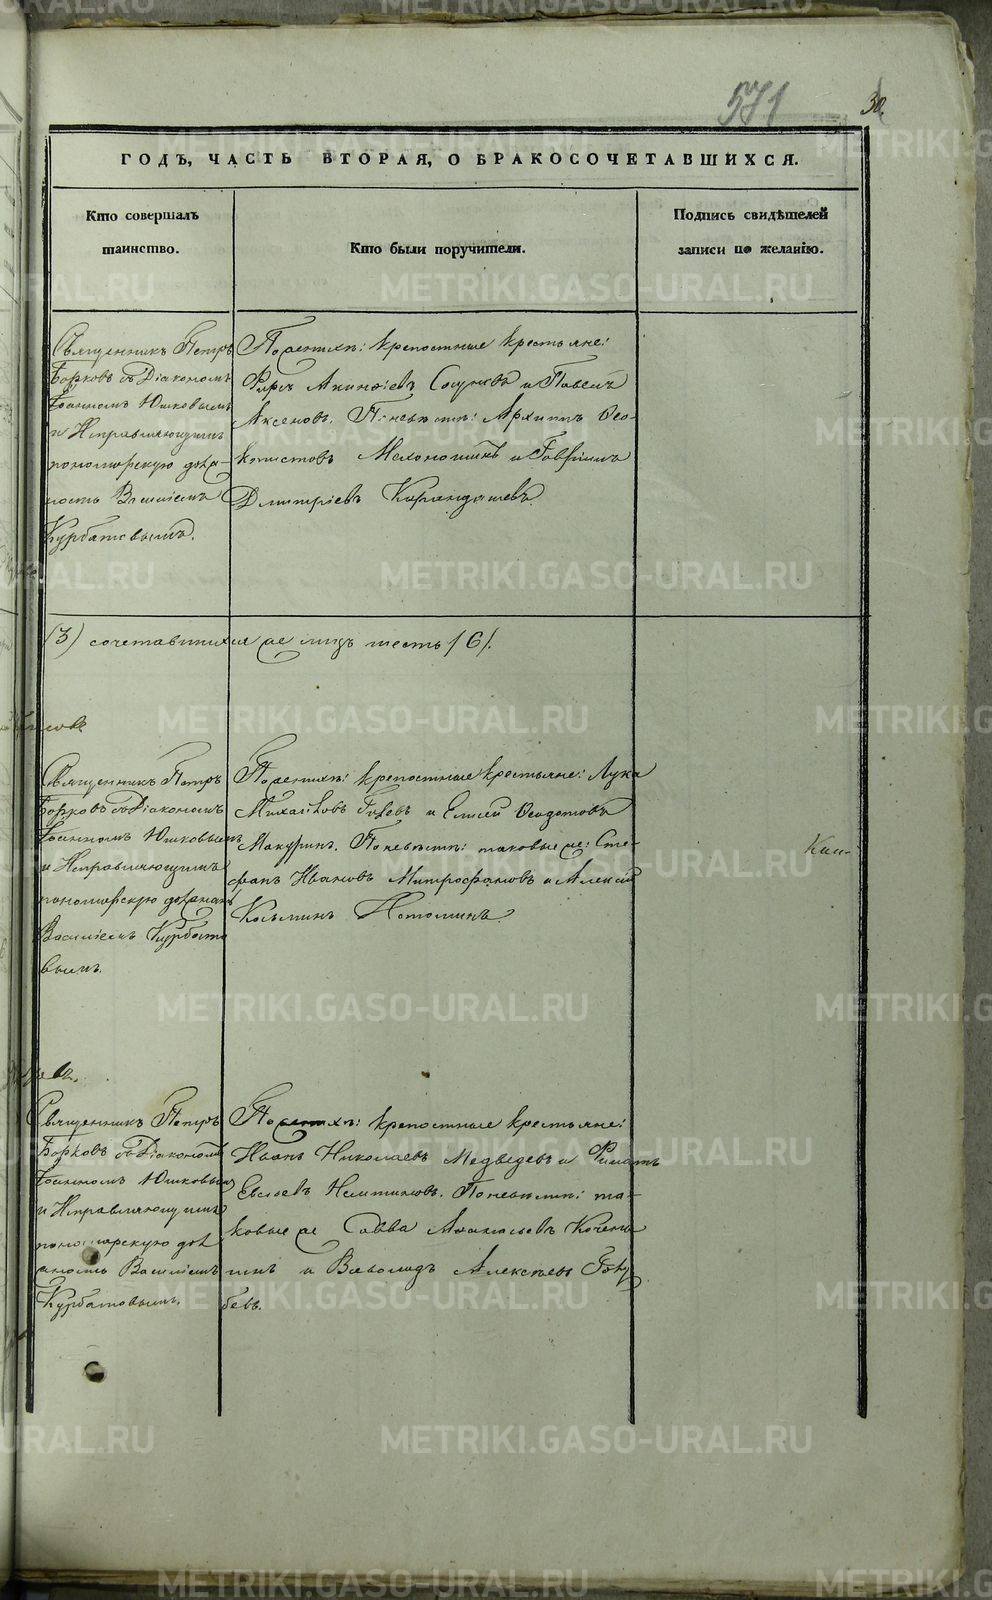 571
30.
ГОДЪ, ЧАСТЬ ВТОРАЯ, О БРАКОСОЧЕТАВШИХСЯ.
Кто совершалъ
таинство.
Кто были поручители.
Подпись свидѣтелей
записи по желанію.
Священникъ Петръ
Борковъ съ Діакономъ
Іоанномъ Юшковымъ
и Исправляющимъ
пономарскую долж-
ность Василіемъ
Курбатовымъ.
Поженихѣ: крепостные крестьяне:
Фирсъ и Павелъ
Аксеновъ. Поневѣстѣ: Архипъ Ѳео-
ктистовъ и Гавріилъ
Дмитріевъ Карандашевъ.
(3) сочетавшихся же лицъ шесть (6).
Священникъ Петръ
Борковъ съ Діакономъ
Іоанномъ Юшковымъ
и Исправляющимъ
пономарскую должность
Василіемъ Курбато
вымъ.
Поженихѣ: крепостные крестьяне: Лука
Михайловъ и Елисей Ѳеодотовъ
Макуринъ. Поневѣстѣ: таковые же: Сте-
фанъ Ивановъ Митрофановъ и Алексей
Козьминъ
Священникъ Петръ
Борковъ съ Діакономъ
Іоанномъ Юшковымъ
и Исправляющимъ
пономарскую долж
ность Василіемъ
Курбатовымъ.
Поженихѣ: крепостные крестьяне:
Иванъ Николаевъ Медведевъ и
Евсѣевъ Поневѣстѣ: та-
ковые же Савва
и Всеволодъ Алексѣевъ
бевъ.
METRIKI.GASO-URAL.RU